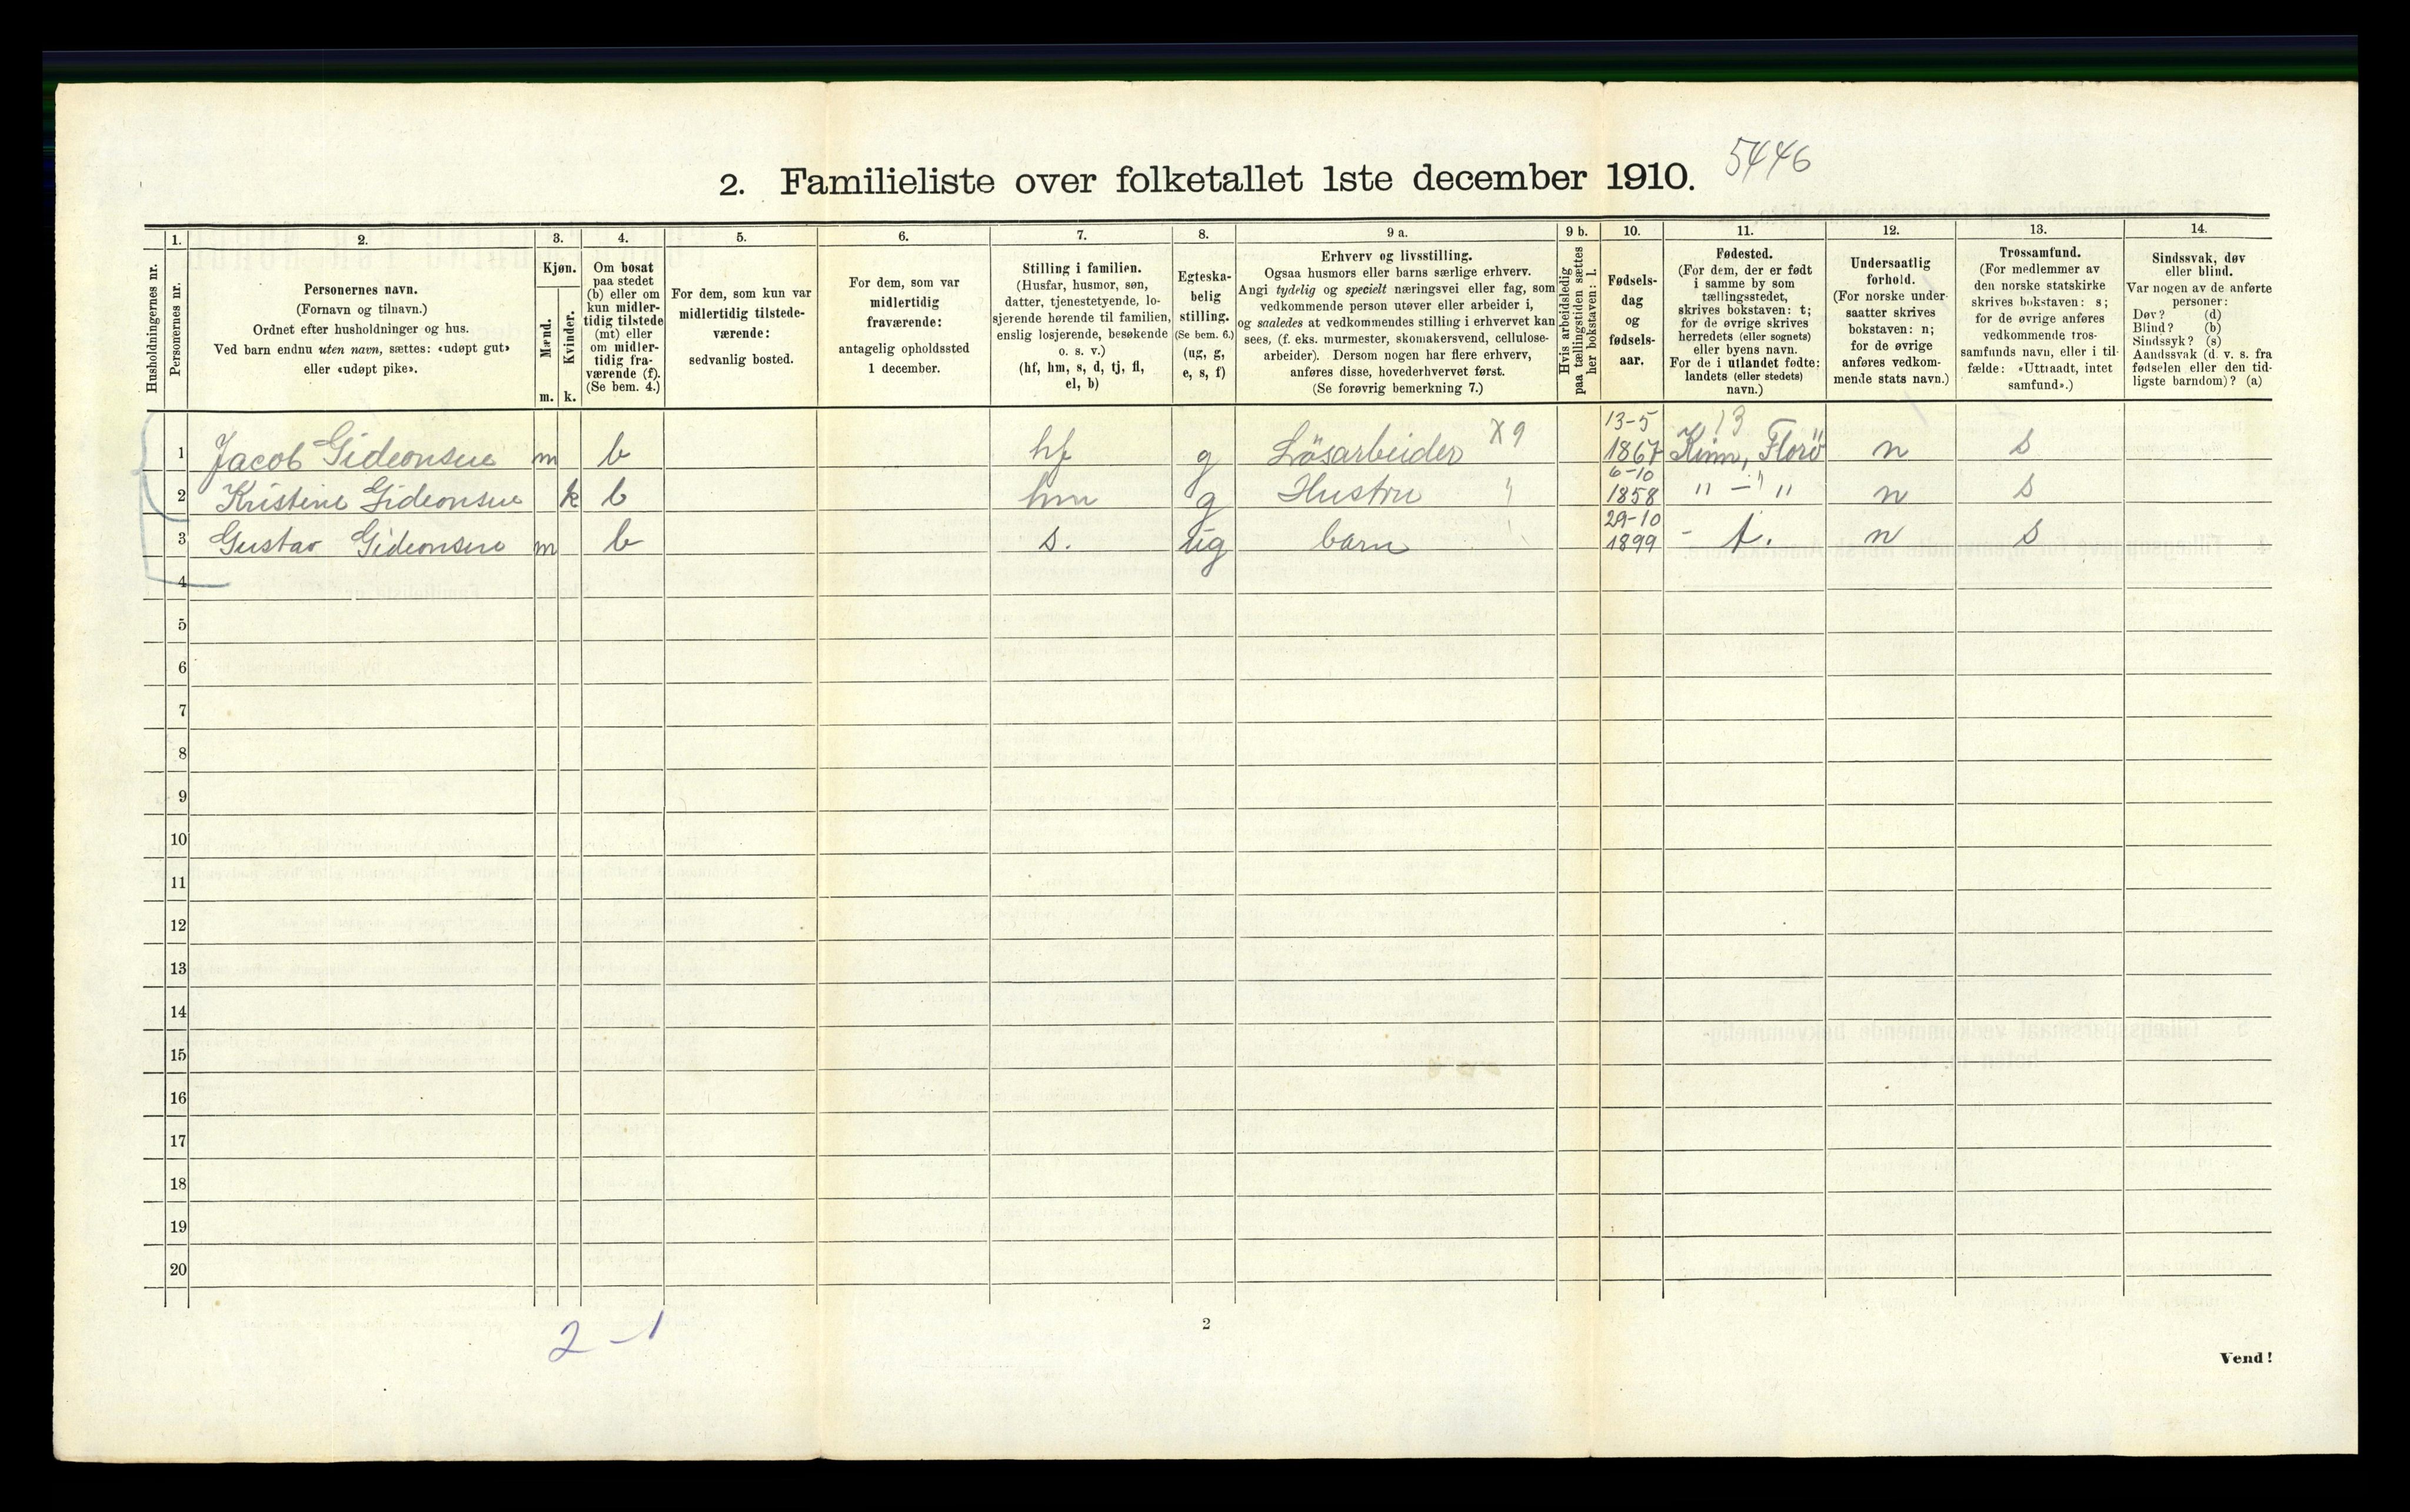 2. Familieliste over folketallet 1ste december 1910.
5446
Husholdningernes nr.
1.
Personernes nr.
2.
Personernes navn.
(Fornavn og tilnavn.)
Ordnet efter husholdninger og hus.
Ved barn endnu uten navn, sættes: «udøpt gut»
eller «udøpt pike».
3.
Kjøn.
Mænd.
Kvinder.
m. k.
4.
Om bosat
paa stedet
(b) eller om
kun midler-
tidig tilstede
(mt) eller
om midler-
tidig fra-
værende (f).
(Se bem. 4.)
5.
For dem, som kun var
midlertidig tilstede-
værende:
sedvanlig bosted.
6.
For dem, som var
midlertidig
fraværende:
antagelig opholdssted
1 december.
7.
Stilling i familien.
(Husfar, husmor, søn,
datter, tjenestetyende, lo-
sjerende hørende til familien,
enslig losjerende, besøkende
o. s. v.)
(hf, hm, s, d, tj, fl,
el, b)
8.
Egteska-
belig
stilling.
(Se bem. 6.)
(ug, g,
e, s, f)
9 a.
Erhverv og livsstilling.
Ogsaa husmors eller barns særlige erhverv.
Angi tydelig og specielt næringsvei eller fag, som
vedkommende person utøver eller arbeider i,
og saaledes at vedkommendes stilling i erhvervet kan
sees, (f. eks. murmester, skomakersvend, cellulose-
arbeider). Dersom nogen har flere erhverv,
anføres disse, hovederhvervet først.
(Se forøvrig bemerkning 7.)
9 b.
Hvis arbeidsledig
paa tællingstiden sættes
her bokstaven: l.
10.
Fødsels-
dag
og
fødsels-
aar.
11.
Fødested.
(For dem, der er født
i samme by som
tællingsstedet,
skrives bokstaven: t;
for de øvrige skrives
herredets (eller sognets)
eller byens navn.
For de i utlandet fødte:
landets (eller stedets)
navn.)
12.
Undersaatlig
forhold.
(For norske under-
saatter skrives
bokstaven: n;
for de øvrige
anføres vedkom-
mende stats navn.)
13.
Trossamfund.
(For medlemmer av
den norske statskirke
skrives bokstaven: s;
for de øvrige anføres
vedkommende tros-
samfunds navn, eller i til-
fælde: «Uttraadt, intet
samfund».)
14.
Sindssvak, døv
eller blind.
Var nogen av de anførte
personer:
Døv? (d)
Blind? (b)
Sindssyk? (s)
Aandssvak (d. v. s. fra
fødselen eller den tid-
ligste barndom)? (a)
1 Jacob Gideonsen m b hf g Løsarbeider X9 13-5 1867 13 Kinn, Florø n s
2 Kristine Gideonsen k b hm g Hustru " 6-10 1858 " — " n s
3 Gustav Gideonsen m b s. ug barn 29-10 1899 - t. n s
4
5
6
7
8
9
10
11
12
13
14
15
16
17
18
19
20
2-1
2
Vend!